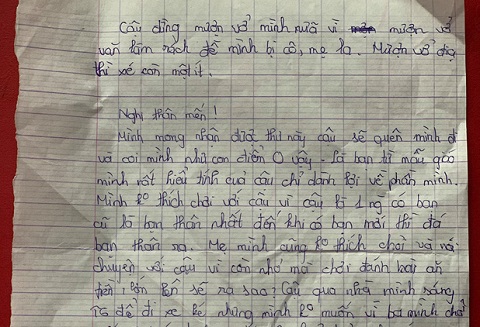 Cậu đừng mượn vở mình nữa vì mượn vở
văn làm rách để mình bị cô, mẹ la. Mượn vở địa
thì xé còn một ít.
Nghi thân mến!
Mình mong nhận được thư này cậu sẽ quên mình đi
và coi mình như con điên O vậy. Là bạn từ mẫu giáo
mình rất hiểu tính của cậu chỉ dành lợi về phần mình.
Mình ko thích chơi với cậu vì cậu là 1 ng có bạn
cũ là bạn thân nhất đến khi có bạn mới thì đá
bạn thân ra. Mẹ mình cũng ko thích chơi và nói
chuyện với cậu vì còn nhỏ mà chơi đánh bài ăn
tiền lớn lên sẽ ra sao? Cậu qua nhà mình sáng
để đi xe ké nhưng mình ko muốn vì ba mình chở